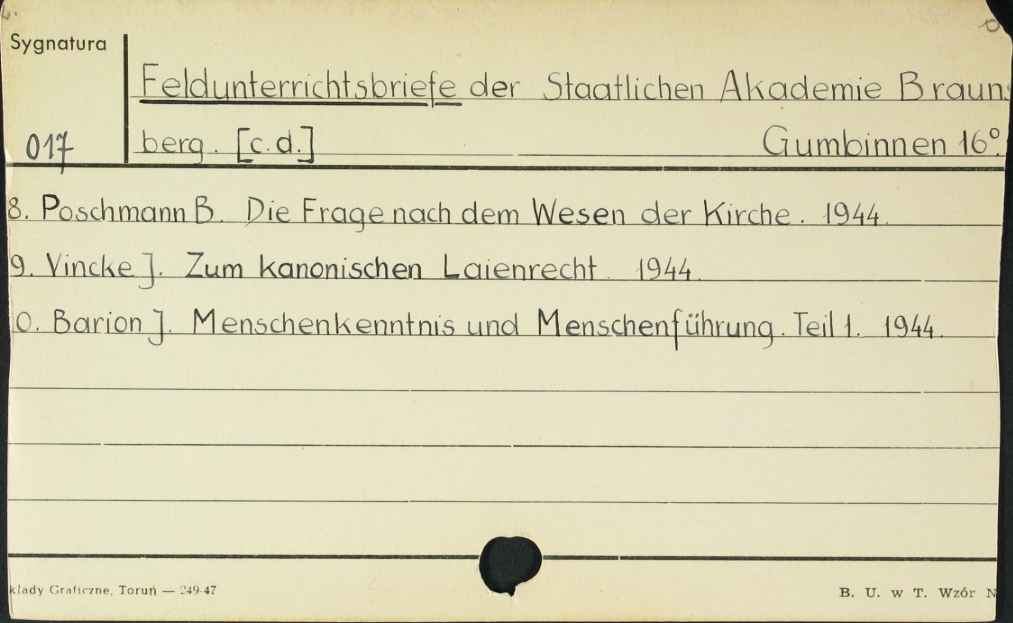 Sygnatura
Feldunterrichtsbriefe der Staatlichen Akademie Brauns
017 berg. [c.d.] Gumbinnen 16°.
8. Poschmann B. Die Frage nach dem Wesen der Kirche. 1944.
9. Vincke J. Zum kanonischen Laienrecht 1944.
0. Barion J. Menschenkenntnis und Menschenführung. Teil 1. 1944.
kłady Graficzne, Toruń — 249-47
B. U. w T. Wzór N